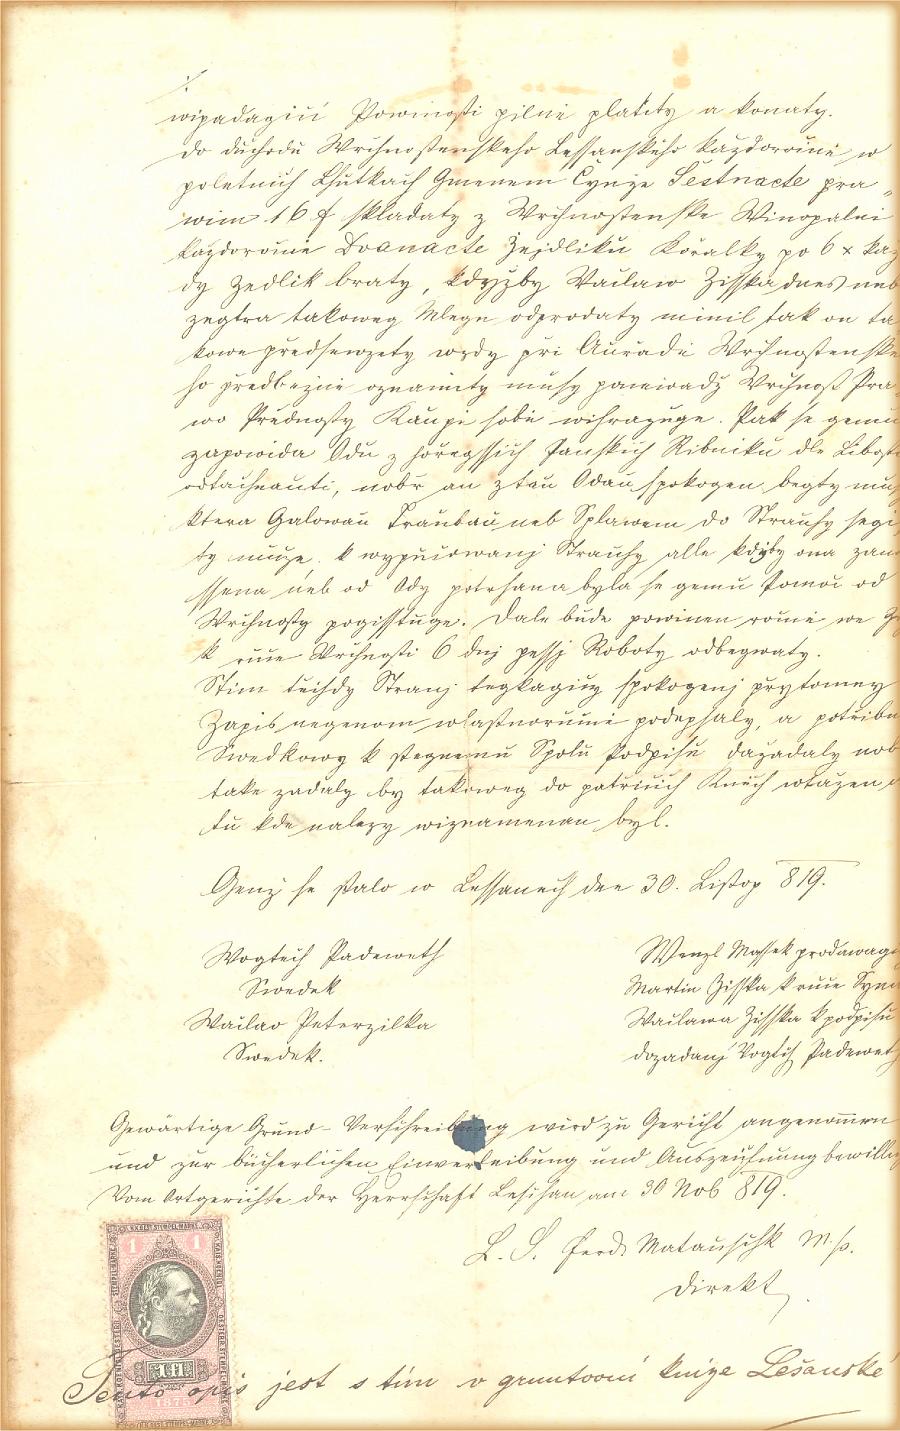 wipadagicí Powinosti pilně platity a konaty.
do duchodu Wrchnostenskeho Lessanskeho každoročně w
poletnich Lhutkach Gmenem Cynže Šestnacte pra-
wim 16 f skladaty z Wrchnostenske Winopalni
každoročně Dvanacte Žejdliku Kořalky po 6 x kaž
dy Zedlik braty, kdyžby Waclaw Zisska dnes neb
zegtra takoweg Mlegn odprodaty minil tak on ta
kowe předsewzety wzdy při Auřadě Wrchnostenske
ho předbežně oznamity musy poněwadž Wrchnost Pra
wo Přednosty Kaupi sobě wihrazuge. Pak se gemu
zapowida Vdu z hořegssich Panskich Ribniku dle Libosti
odtachnauti, nobř an ztau Vdau spokogen begty mus
ktera Galowau Traubau neb Splawem do Strauhy segi
ty muže, k wypučowanj Strauhy alle kdyby ona zane
ssena neb od Vdy potrhana byla se gemu Pomoc od
Wrchnosty pogisstuge. Dale bude powinen ročně we
k ruce Wrchnosti 6 dnj pessj Roboty odbegwaty.
Stim teihdy Stranj tegkagicy spokogenj přytomney
Zapis negenom wlastnoručně podepsaly, a potřibn
Swedkowy k stegnemu Spolu Podpisu dažadaly nob
take zadaly by takoweg do patřicich Knich wtazen
tu kde nalezy wiznamenan byl.
Genž se stalo w Lessanech dne 30. Listop 819.
Wogtech Padeweth
Swedek
Waclao Peterzilka
Swedek.
Wenzl Massek prodawagi
Martin Zisska k ruce Syna
Waclawa Zisska k podpisu
dožadanj Vogtěch Padeweth
Gewärtige Grund-Verschreibung wird zu Gericht angenommen
und zur bücherlichen Einverleibung und Auszeichnung bewillig
Vom Ortgerichte der Herrschaft Leschan am 30 Nob 819.
L. S. Ferd. Matauschk M.p.
Direkt
1 1
STEMPEL MARKE
1 fl
1875
Tento opis jest s tím v gruntovní knize Lešanské